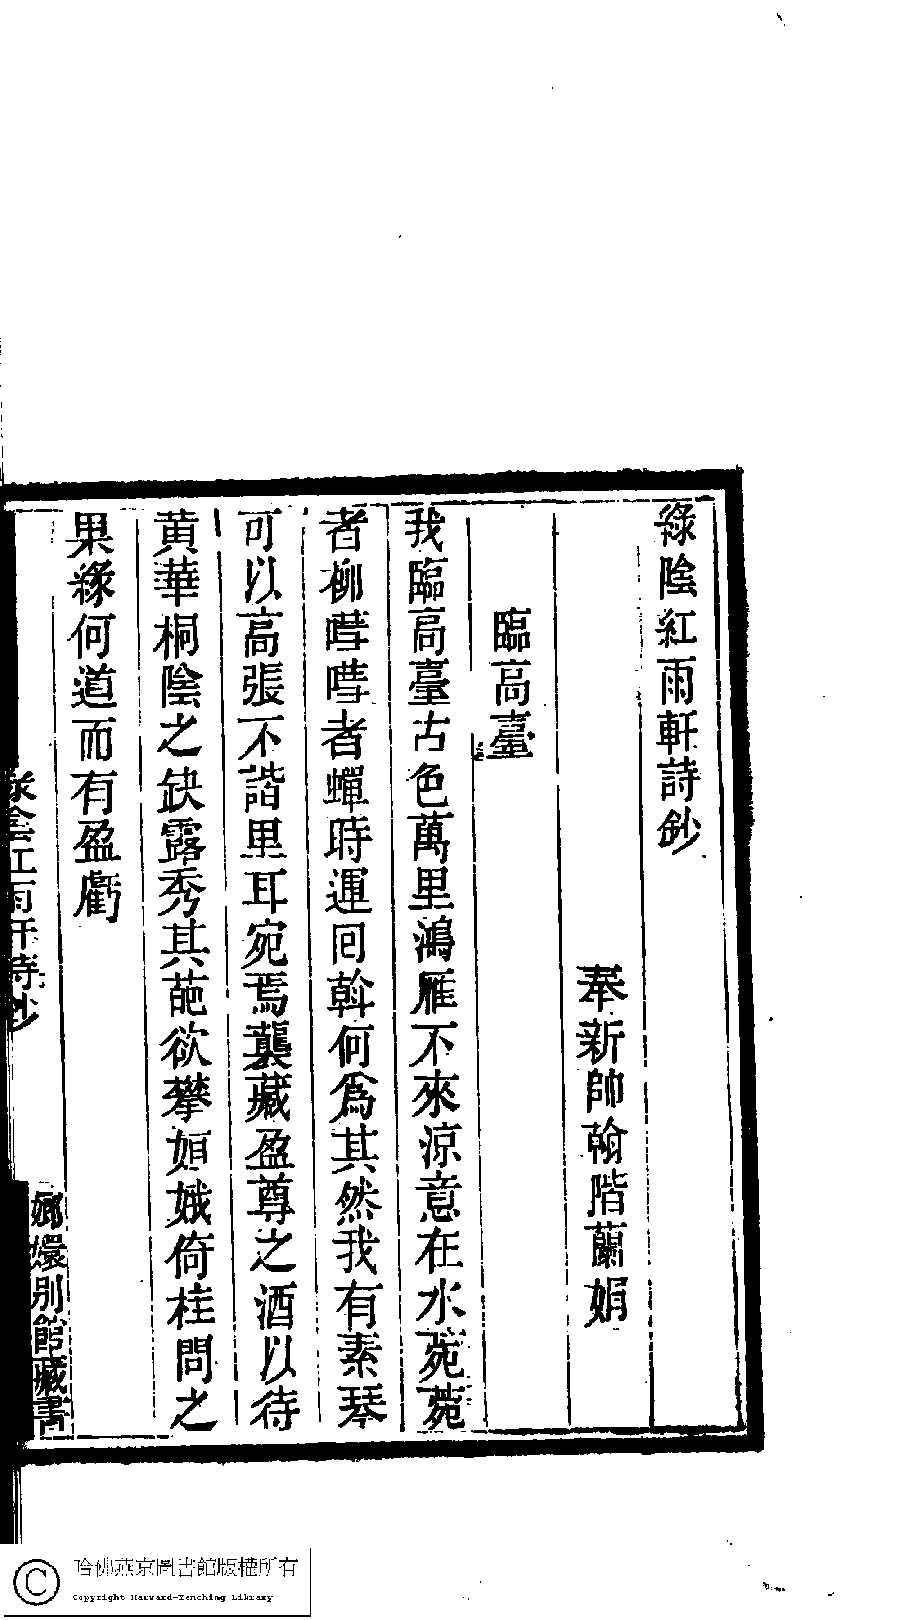 綠陰紅雨軒詩鈔
奉新帥翰階蘭娟
臨高臺
我臨高臺古色萬里鴻雁不來涼意在水菀菀
者柳嘒嘒者蟬時運回斡何爲其然我有素琴
可以高張不諧里耳宛焉襲藏盈尊之酒以待
黄華桐陰之缺露秀其葩欲攀姮娥倚桂問之
果緣何道而有盈虧
綠陰紅雨軒詩鈔
嫏嬛別館藏書
哈佛燕京圖書館版權所有
Copyright Harvard-Yenching Library